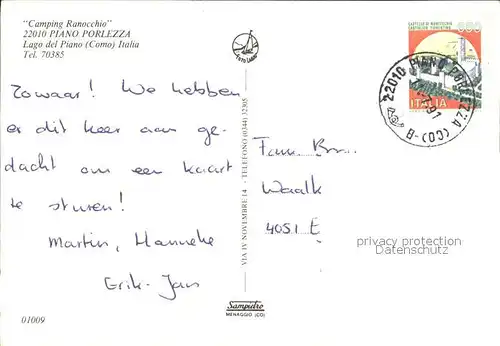 "Camping Ranocchio"
22010 PIANO PORLEZZA
Lago del Piano (Como) Italia
Tel. 70385
Zowaar! We hebben
er dit keer aan ge-
dacht om een kaart
te sturen!
Martin, Hanneke
Erik-Jan
01009
VIA IV NOVEMBRE 14 - TELEFONO (0344) 32305
Sampietro
MENAGGIO (CO)
CASTELLO DI MONTECCHIO
CASTIGLION FIORENTINO
600
ITALIA
22010 PIANO PORLEZZA (CO)-B
Fam. Br...
Waalk
4051 E
privacy protection
Datenschutz